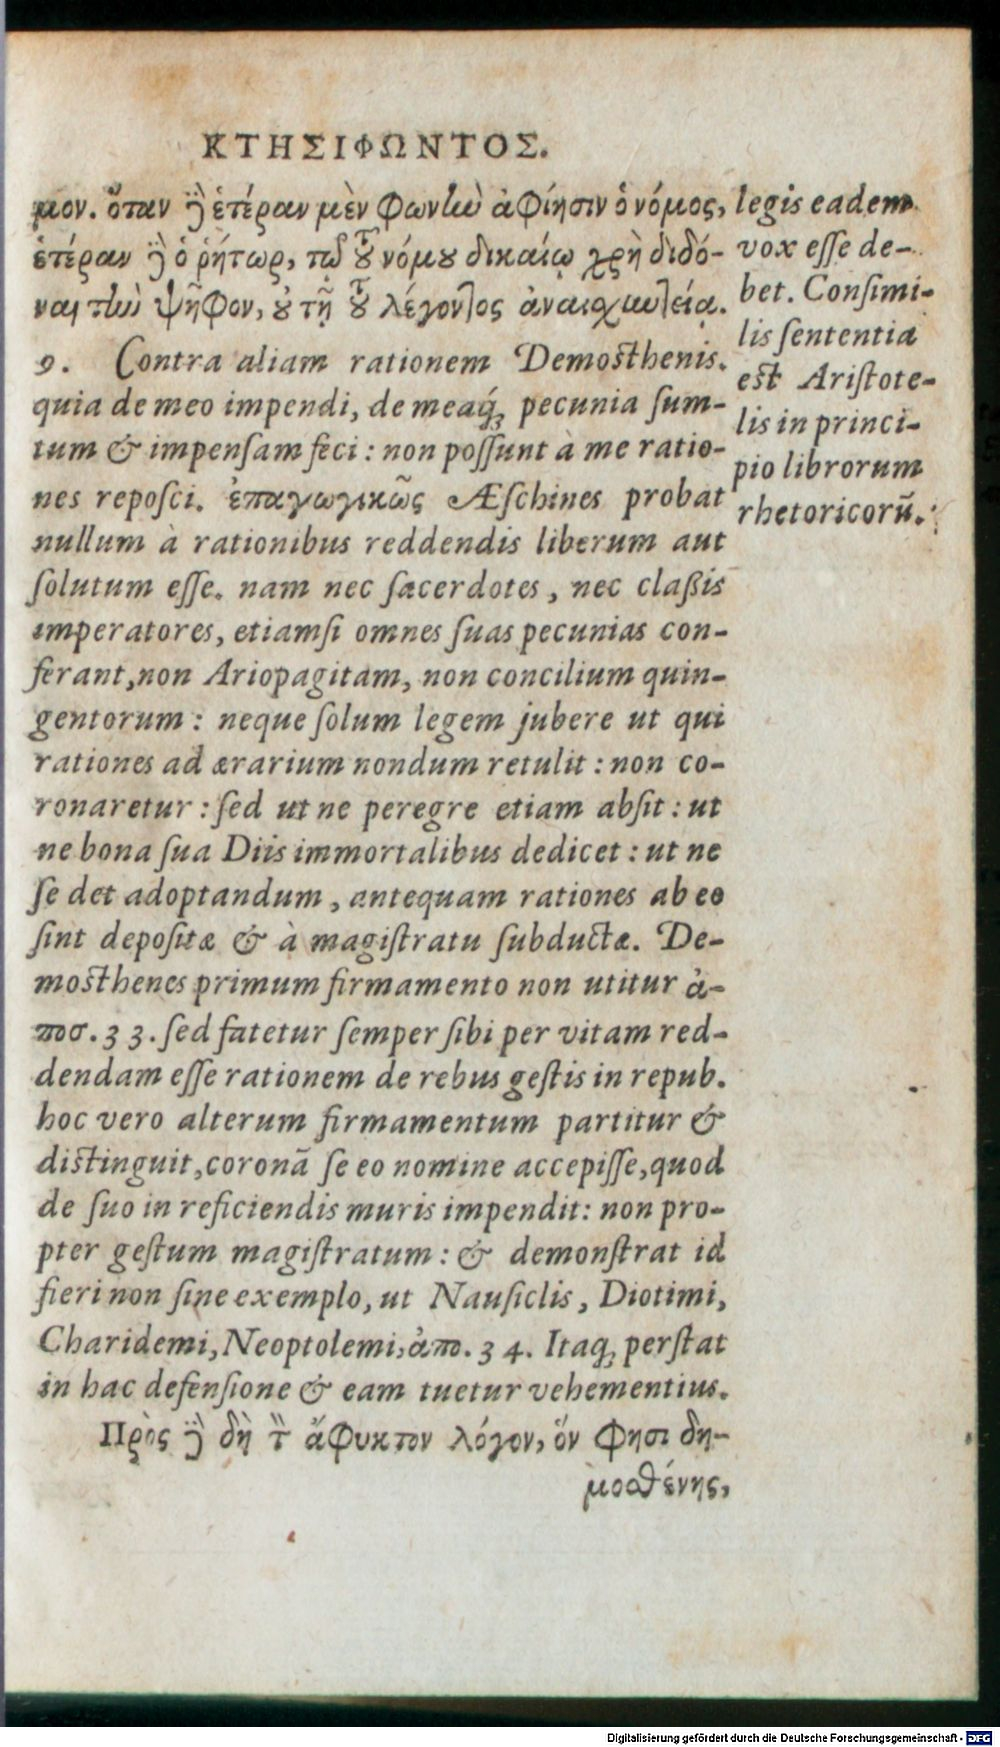 ΚΤΗΣΙΦΩΝΤΟΣ.
μον. ὅταν ϳὲ ἑτέραν μὲν φωνὴν ἀφίησιν ὁ νόμος,
ἑτέραν ϳὲ ὁ ῥήτωρ, τῷ τοῦ νόμου δικαίῳ χρὴ διδό-
ναι τὴν ψῆφον, οὐ τῇ τοῦ λέγοντος ἀναισχυντείᾳ.
9. Contra aliam rationem Demosthenis.
quia de meo impendi, de meaq́; pecunia ſum-
tum & impenſam feci: non poſſunt à me ratio-
nes repoſci. ἐπαγωγικῶς Æſchines probat
nullum à rationibus reddendis liberum aut
ſolutum eſſe. nam nec ſacerdotes, nec claßis
imperatores, etiamſi omnes ſuas pecunias con-
ferant, non Ariopagitam, non concilium quin-
gentorum: neque ſolum legem jubere ut qui
rationes ad ærarium nondum retulit: non co-
ronaretur: ſed ut ne peregre etiam abſit: ut
ne bona ſua Diis immortalibus dedicet: ut ne
ſe det adoptandum, antequam rationes ab eo
ſint depoſitæ & à magiſtratu ſubductæ. De-
mosthenes primum firmamento non utitur ἀ-
ποσ. 33. ſed fatetur ſemper ſibi per vitam red-
dendam eſſe rationem de rebus geſtis in repub.
hoc vero alterum firmamentum partitur &
distinguit, coronã ſe eo nomine accepiſſe, quod
de ſuo in reficiendis muris impendit: non pro-
pter geſtum magiſtratum: & demonſtrat id
fieri non ſine exemplo, ut Nauſiclis, Diotimi,
Charidemi, Neoptolemi, ἀπο. 34. Itaq; perſtat
in hac defenſione & eam tuetur vehementius.
Πρὸς ϳὲ δὴ τὸν ἄφυκτον λόγον, ὅν φησι δη-
μοσθένης,
legis eadem
vox eſſe de-
bet. Conſimi-
lis ſententia
est Ariſtote-
lis in princi-
pio librorum
rhetoricorũ.
Digitalisierung gefördert durch die Deutsche Forschungsgemeinschaft - DFG